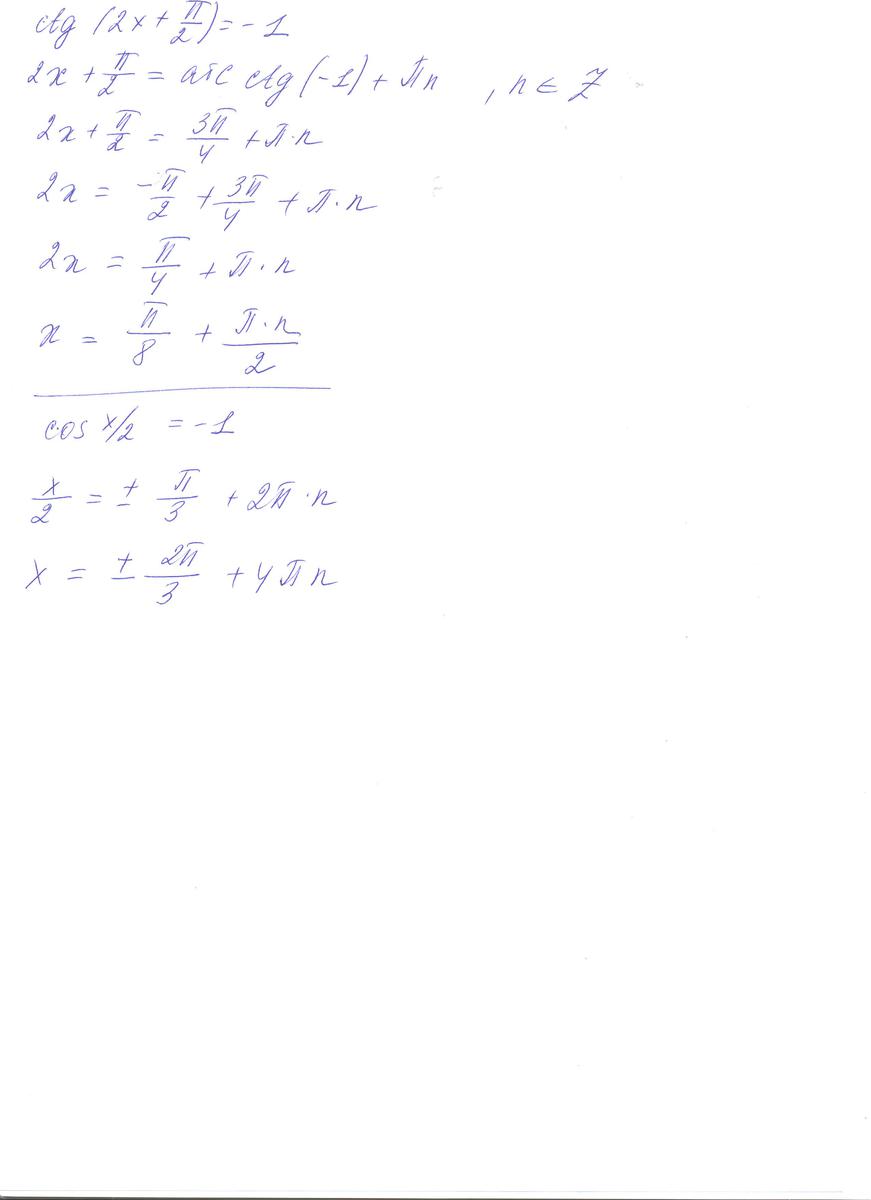 ctg (2x + π/2) = -1
2x + π/2 = arc ctg (-1) + πn , n ∈ Z
2x + π/2 = 3π/4 + π·n
2x = -π/2 + 3π/4 + π·n
2x = π/4 + π·n
x = π/8 + π·n/2
cos x/2 = -1
x/2 = ± π/3 + 2π·n
x = ± 2π/3 + 4πn